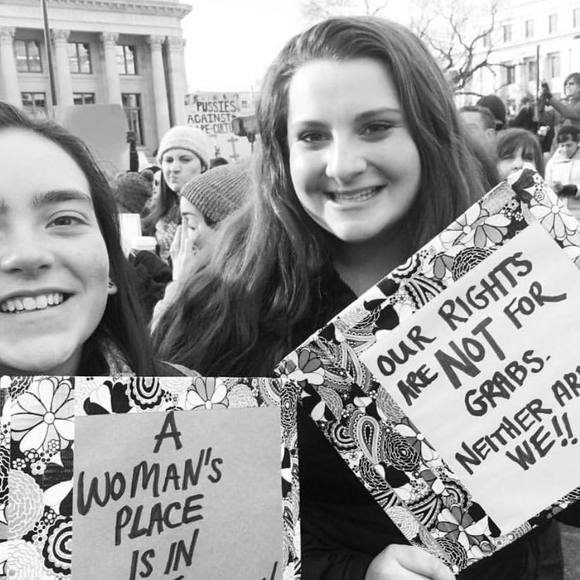 PUSSIES
AGAINST
RAPE-CULTURE
OUR RIGHTS
ARE NOT FOR
GRABS.
NEITHER ARE
WE!!
A
WOMAN'S
PLACE
IS IN